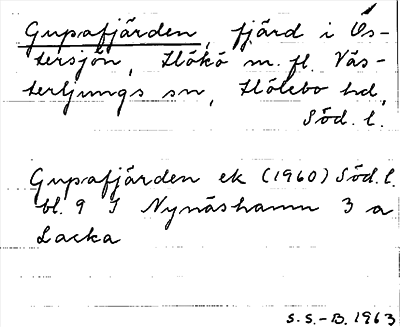 Gupafjärden, fjärd i Ös-
tersjön, Hökö m. fl. Väs-
terljungs sn, Hölebo hd,
Söd. l.
Gupafjärden ek (1960) Söd. l.
bl. 9 I Nynäshamn 3 a
Lacka
S.S.-B. 1963